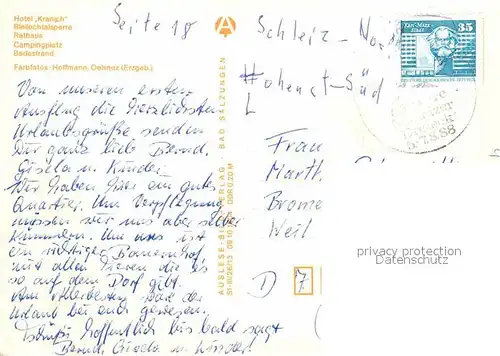 Hotel „Kranich"
Bleilochtalsperre
Rathaus
Campingplatz
Badestrand
Farbfotos: Hoffmann, Oelsnitz (Erzgeb.)
Seite 18
Von unseren ersten
Ausflug die herzlichsten
Urlaubsgrüße senden
Dir ganz lieb Bernd,
Gisela u. Kinder
Wir haben hier ein gutes
Quartier. Um Verpflegung
müssen wir uns aber selber
kümmern. Um uns ist
ein richtiger Bauernhof,
mit allen Tieren die es
so auf dem Dorf gibt.
Am allerbesten
Urlaub bei euch gewesen.
Tschüß hoffentlich bis bald sagt
Bernd Gisela u. Kinder
AUSLESE-BILD-VERLAG · BAD SALZUNGEN
DDR 0,20 M
A
Schleiz - Nord
Hohenst-Süd
L
Frau
Marth
Brome
Weil
D 7
35
DDR
88
privacy protection
Datenschutz